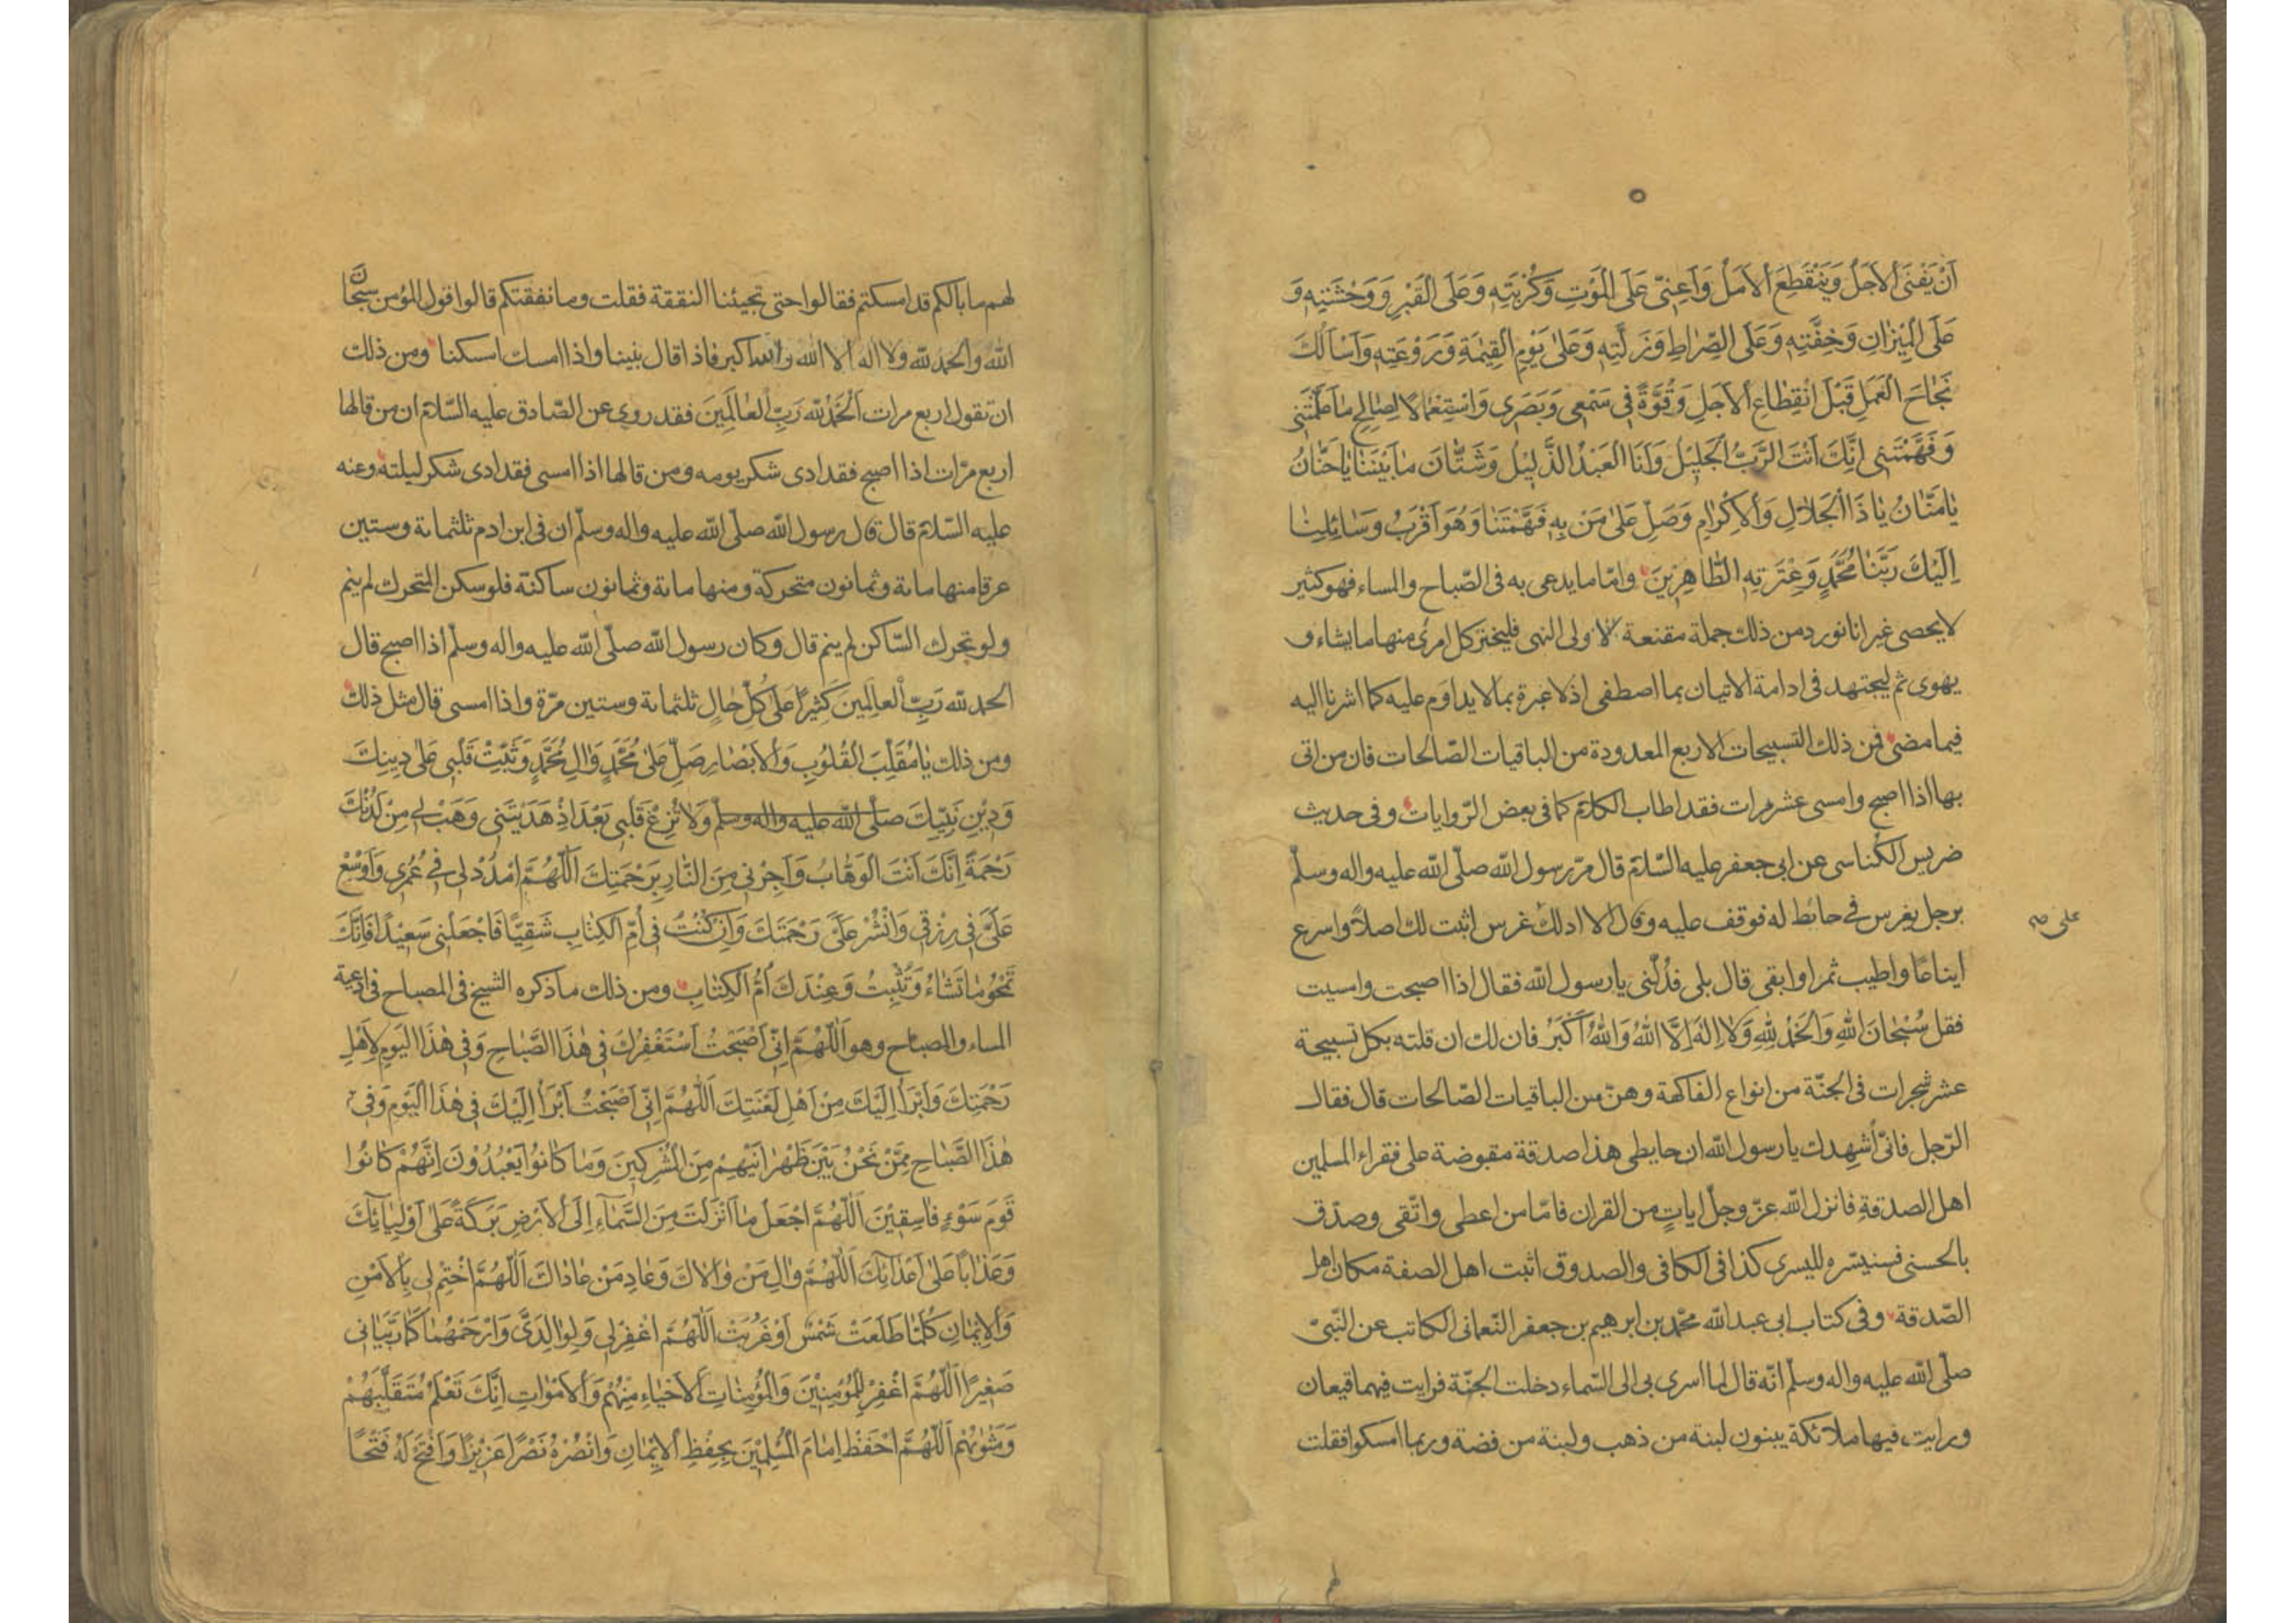 اَنْ يَفْنَى الْاَجَلُ وَيَنْقَطِعَ الْاَمَلُ وَاَعِنّى عَلَى الْمَوْتِ وَكُرْبَتِهِ وَعَلَى الْقَبْرِ وَوَحْشَتِهِ وَ
عَلَى الْمِيْزَانِ وَخِفَّتِهِ وَعَلَى الصِّرَاطِ وَزَلَّتِهِ وَعَلىٰ يَوْمِ الْقِيٰمَةِ وَرَوْعَتِهِ وَاَسْاَلُكَ
نَجَاحَ الْعَمَلِ قَبْلَ انْقِطَاعِ الْاَجَلِ وَقُوَّةً فِى سَمْعِى وَبَصَرِى وَاسْتِعْمَالًا لِصَالِحِ مَا عَلَّمْتَنِى
وَفَهَّمْتَنِى اِنَّكَ اَنْتَ الرَّبُّ الْجَلِيْلُ وَاَنَا الْعَبْدُ الذَّلِيْلُ وَشَتَّانَ مَا بَيْنَنَا يَا حَنَّانُ
يَا مَنَّانُ يَا ذَا الْجَلَالِ وَالْاِكْرَامِ وَصَلِّ عَلىٰ مَنْ بِهِ فَهَّمْتَنَا وَهُوَ اَقْرَبُ وَسَائِلِنَا
اِلَيْكَ رَبَّنَا مُحَمَّدٍ وَعِتْرَتِهِ الطَّاهِرِيْنَ وامّا ما يدعى به فى الصّباح والمساء فهو كثير
لا يحصى غير انا نورد من ذلك جملة مقنعة لاولى النهى فليختر كل امرئ منها ما يشاء و
يهوى ثم ليجتهد فى ادامة الاتيان بما اصطفى اذ لا عبرة بما لا يداوم عليه كما اشرنا اليه
فيما مضى فمن ذلك التسبيحات الاربع المعدودة من الباقيات الصّالحات فان من اتى
بها اذا اصبح وامسى عشر مرات فقد اطاب الكلام كما فى بعض الرّوايات وفى حديث
ضريس الكناسى عن ابى جعفر عليه السّلام قال مرّ رسول الله صلّى الله عليه واله وسلّم
برجل يغرس فى حائط له فوقف عليه وقال الا ادلك غرس اثبت لك اصلاً واسرع
على صح
ايناعًا واطيب ثمرا وابقى قال بلى فدُلّنى يا رسول الله فقال اذا اصبحت وامسيت
فقل سُبْحَانَ اللهِ وَالْحَمْدُ لِلّٰهِ وَلَا اِلٰهَ اِلَّا اللهُ وَاللهُ اَكْبَرُ فان لك ان قلته بكل تسبيحة
عشر شجرات فى الجنّة من انواع الفاكهة وهنّ من الباقيات الصّالحات قال فقال
الرّجل فانّى اُشهدك يا رسول الله ان حايطى هذا صدقة مقبوضة على فقراء المسلمين
اهل الصدقةِ فانزل الله عزّ وجلّ اياتٍ من القران فامّا من اعطى واتّقى وصدّق
بالحسنى فسنيسّره لليسرى كذا فى الكافى والصدوق اثبت اهل الصفة مكان اهل
الصّدقة وفى كتاب ابى عبد الله محمّد بن ابرهيم بن جعفر النّعمانى الكاتب عن النّبىّ
صلّى الله عليه واله وسلّم انّه قال لما اسرى بى الى السّماء دخلت الجنّة فرايت فيها قيعان
ورايت فيها ملائكة يبنون لبنة من ذهب ولبنة من فضة وربما امسكوا فقلت
لهم
لهم ما بالكم قد امسكتم فقالوا حتى تجيئنا النفقة فقلت وما نفقتكم قالوا قول المؤمن سبحان
الله والحمد لله ولا اله الا الله والله اكبر فاذا قال بنينا واذا امسك امسكنا ومن ذلك
ان تقول اربع مرات اَلْحَمْدُ لِلّٰه رَبِّ الْعَالَمِيْنَ فقد روى عن الصّادق عليه السّلام ان من قالها
اربع مرّات اذا اصبح فقد ادى شكر يومه ومن قالها اذا امسى فقد ادى شكر ليلته وعنه
عليه السّلام قال قال رسول الله صلّى الله عليه واله وسلّم ان فى ابن ادم ثلثمائة وستين
عرقا منها مائة وثمانون متحركة ومنها مائة وثمانون ساكنة فلو سكن المتحرك لم ينم
ولو تحرك السّاكن لم ينم قال وكان رسول الله صلّى الله عليه واله وسلّم اذا اصبح قال
الحمد لله رَبِّ الْعالَمِينَ كَثِيْرًا عَلىٰ كُلِّ حَالٍ ثلثمائة وستين مرّة واذا امسى قال مثل ذلك
ومن ذلك يَا مُقَلِّبَ الْقُلُوبِ وَالْاَبْصَارِ صَلِّ عَلىٰ مُحَمَّدٍ وَاٰلِ مُحَمَّدٍ وَثَبِّتْ قَلْبِى عَلىٰ دِينِكَ
وَدِيْنِ نَبِيِّكَ صلّى الله عليه واله وسلّم وَلَا تُزِغْ قَلْبِى بَعْدَ اِذْ هَدَيْتَنِى وَهَبْ لِى مِنْ لَدُنْكَ
رَحْمَةً اِنَّكَ اَنْتَ الْوَهَّابُ وَاَجِرْنِى مِنَ النَّارِ بِرَحْمَتِكَ اَللّٰهُمَّ امْدُدْ لِى فِى عُمُرِى وَاَوْسِعْ
عَلَىَّ فِى رِزْقِى وَانْشُرْ عَلَىَّ رَحْمَتَكَ وَاِنْ كُنْتُ فِى اُمِّ الْكِتَابِ شَقِيًّا فَاجْعَلْنِى سَعِيْدًا فَاِنَّكَ
تَمْحُو مَا تَشَاءُ وَتُثْبِتُ وَعِنْدَكَ اُمُّ الْكِتَابِ ومن ذلك ما ذكره الشيخ فى المصباح فى ادعية
المساء والصباح وهو اَللّٰهُمَّ اِنِّى اَصْبَحْتُ اَسْتَغْفِرُكَ فِى هٰذَا الصَّبَاحِ وَفِى هٰذَا الْيَوْمِ لِاَهْلِ
رَحْمَتِكَ وَاَبْرَأُ اِلَيْكَ مِنْ اَهْلِ لَعْنَتِكَ اَللّٰهُمَّ اِنِّى اَصْبَحْتُ اَبْرَأُ اِلَيْكَ فِى هٰذَا الْيَوْمِ وَفِى
هٰذَا الصَّبَاحِ مِمَّنْ نَحْنُ بَيْنَ ظَهْرَانَيْهِمْ مِنَ الْمُشْرِكِينَ وَمَا كَانُوا يَعْبُدُوْنَ اِنَّهُمْ كَانُوا
قَوْمَ سَوْءٍ فَاسِقِيْنَ اَللّٰهُمَّ اجْعَلْ مَا اَنْزَلْتَ مِنَ السَّمَاءِ اِلَى الْاَرْضِ بَرَكَةً عَلىٰ اَوْلِيَائِكَ
وَعَذَاباً عَلىٰ اَعْدَائِكَ اَللّٰهُمَّ وَالِ مَنْ وَالَاكَ وَعَادِ مَنْ عَادَاكَ اَللّٰهُمَّ اخْتِمْ لِى بِالْاَمْنِ
وَالْاِيْمَانِ كُلَّمَا طَلَعَتْ شَمْسٌ اَوْ غَرُبَتْ اَللّٰهُمَّ اغْفِرْ لِى وَلِوَالِدَىَّ وَارْحَمْهُمَا كَمَا رَبَّيَانِى
صَغِيْرًا اَللّٰهُمَّ اغْفِرْ لِلْمُؤْمِنِيْنَ وَالْمُؤْمِنَاتِ الْاَحْيَاءِ مِنْهُمْ وَالْاَمْوَاتِ اِنَّكَ تَعْلَمُ مُتَقَلَّبَهُمْ
وَمَثْوٰيهُمْ اَللّٰهُمَّ احْفَظْ اِمَامَ الْمُسْلِمِيْنَ بِحِفْظِ الْاِيْمَانِ وَانْصُرْهُ نَصْرًا عَزِيْزًا وَافْتَحْ لَهُ فَتْحًا